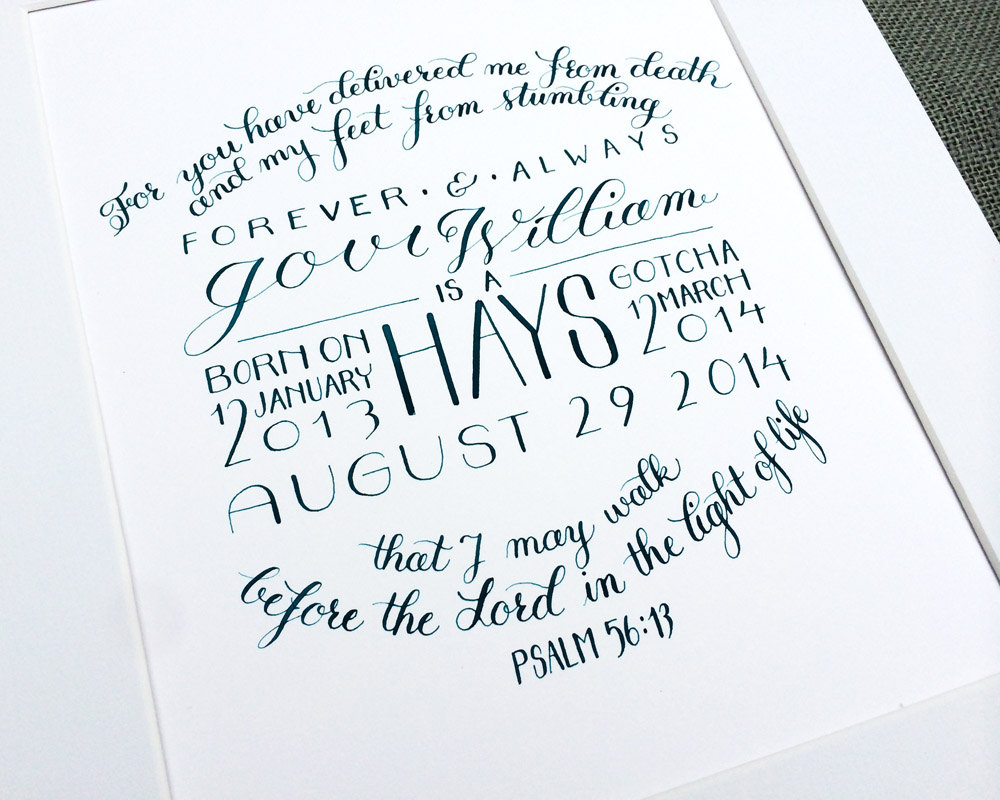 For you have delivered me from death
and my feet from stumbling
FOREVER · & · ALWAYS
Jovi William
IS A
HAYS
BORN ON
12 JANUARY
2013
GOTCHA
12 MARCH
2014
AUGUST 29 2014
that I may walk
before the Lord in the light of life
PSALM 56:13